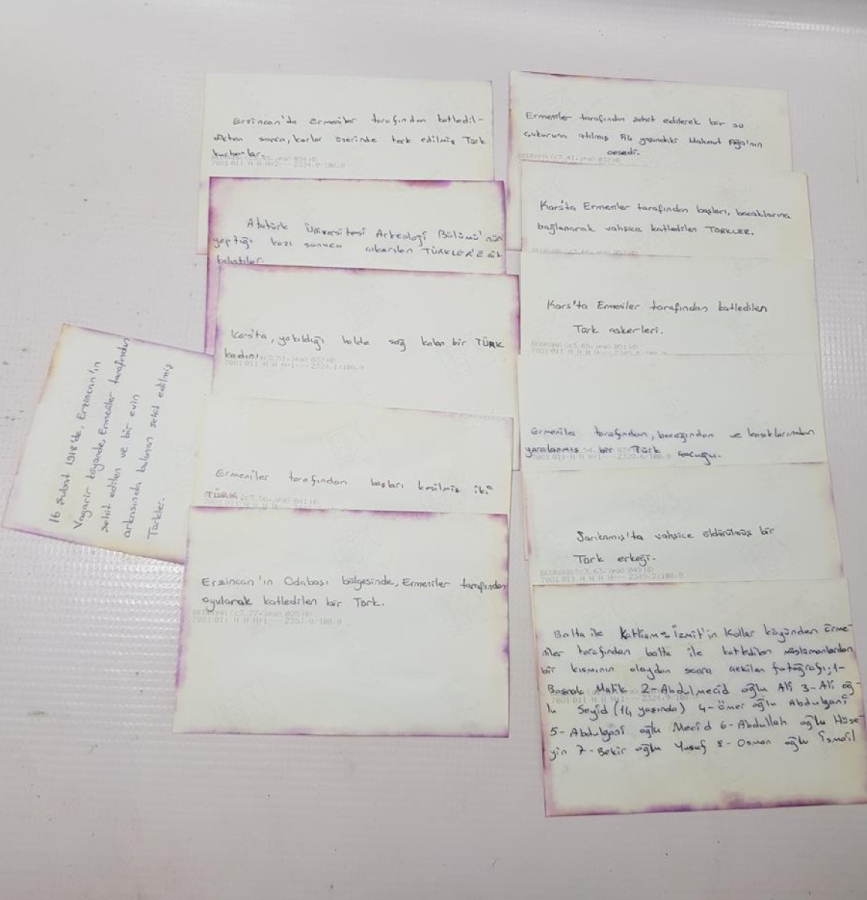 Erzincan'da Ermeniler tarafından katledil-
dikten sonra, karlar üzerinde terk edilmiş Türk
kurbanlar.
Atatürk Üniversitesi Arkeoloji Bölümü'nün
yaptığı kazı sonucu çıkarılan TÜRKLER'E ait
kalıntılar.
Kars'ta, yakıldığı halde sağ kalan bir TÜRK
kadını.
Ermeniler tarafından başları kesilmiş iki
TÜRK
Erzincan'ın Odabası bölgesinde, Ermeniler tarafından
oyularak katledilen bir Türk.
16 Şubat 1918'de, Erzincan'ın
köyünde, Ermeniler tarafından
şehit edilen ve bir evin
arkasında bulunan şehit edilmiş
Türkler.
Ermeniler tarafından şehit edilerek bir su
çukuruna atılmış yaşındaki Mahmut Ağa'nın
cesedi.
Kars'ta Ermeniler tarafından başları, bacaklarına
bağlanarak vahşice katledilen TÜRKLER.
Kars'ta Ermeniler tarafından katledilen
Türk askerleri.
Ermeniler tarafından, bacağından ve
yaralanmış bir Türk çocuğu.
Sarıkamış'ta vahşice öldürülmüş bir
Türk erkeği.
Balta ile Katliam= İzmit'in Kollar köyünden Erme-
niler tarafından balta ile katledilen müslümanlardan
bir kısmının olaydan sonra çekilen fotoğrafı; 1-
Malik 2- Abdulmecid oğlu Ali 3- Ali oğ-
lu Seyid (14 yaşında) 4- Ömer oğlu Abdulgani
5- Abdulgani oğlu Mecid 6- Abdullah oğlu Hüse-
yin 7- Bekir oğlu Yusuf 8- Osman oğlu İsmail